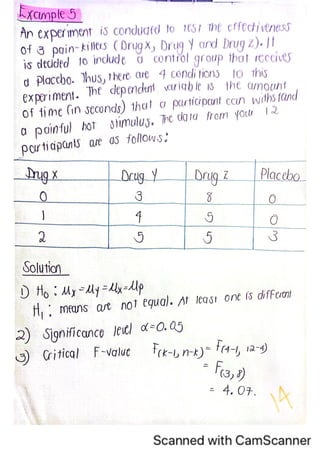 Example 5
An experiment is conducted to test the effectiveness
of 3 pain-killers (Drug X, Drug Y and Drug Z). It
is decided to include a control group that receives
a placebo. Thus, there are 4 conditions to this
experiment. The dependent variable is the amount
of time (in seconds) that a participant can withstand
a painful hot stimulus. The data from your 12
participants are as follows:
Drug X Drug Y Drug Z Placebo
0 3 8 0
1 4 5 0
2 5 5 3
Solution
1) H₀ : Mx = My = Mx = Mp
H₁ : means are not equal. At least one is different
2) Significance level α=0.05
3) Critical F-value F(k-1, n-k) = F(4-1, 12-4)
= F(3, 8)
= 4.07.
14
Scanned with CamScanner